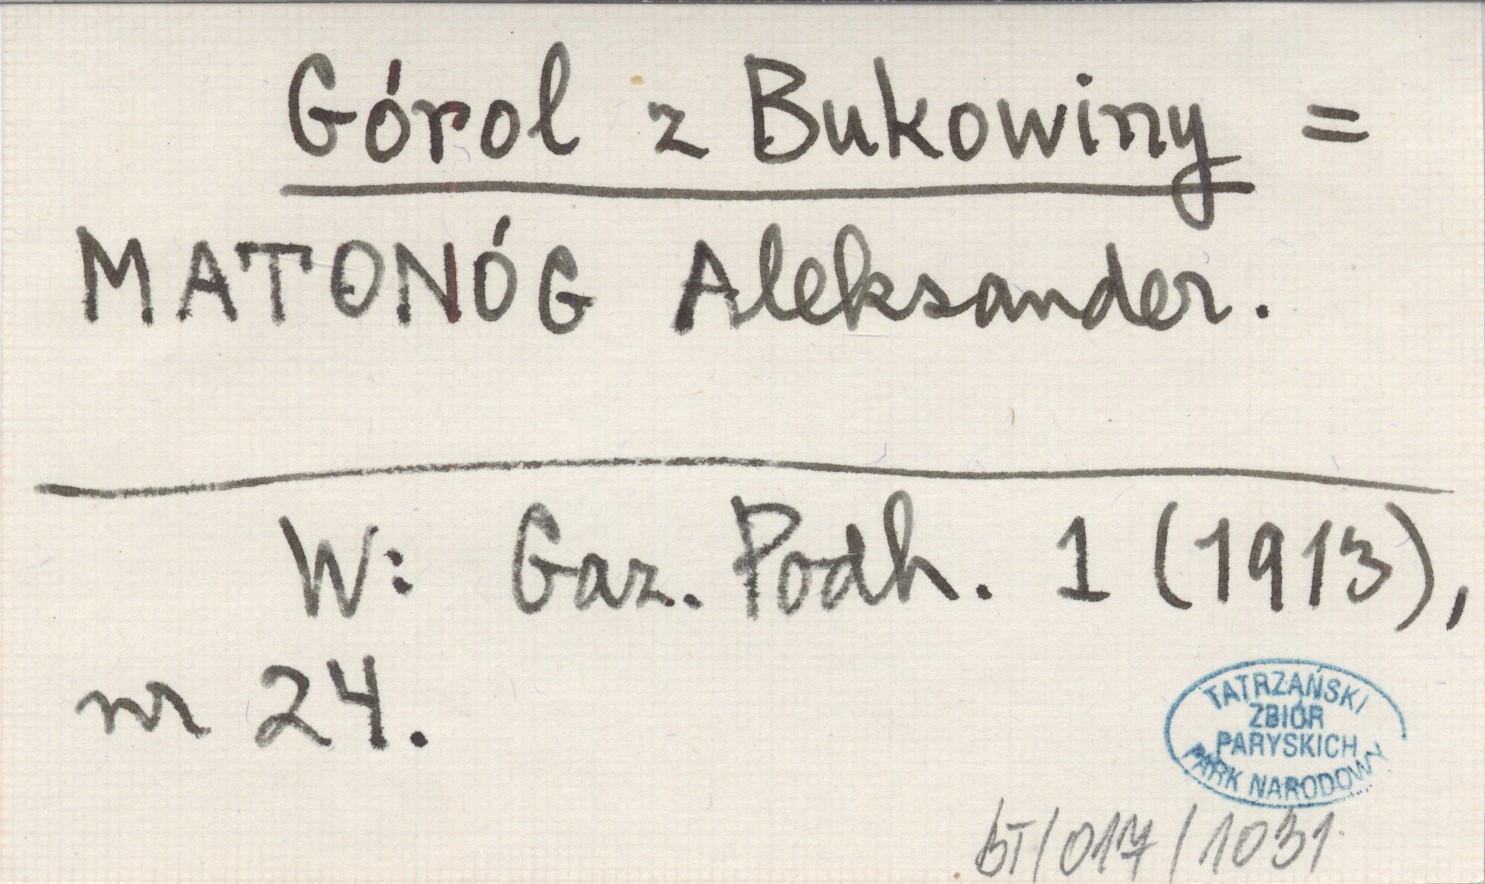 Górol z Bukowiny =
MATONÓG Aleksander.
W: Gaz. Podh. 1 (1913),
nr 24.
TATRZAŃSKI
ZBIÓR
PARYSKICH
PARK NARODOWY
bT/017/1031